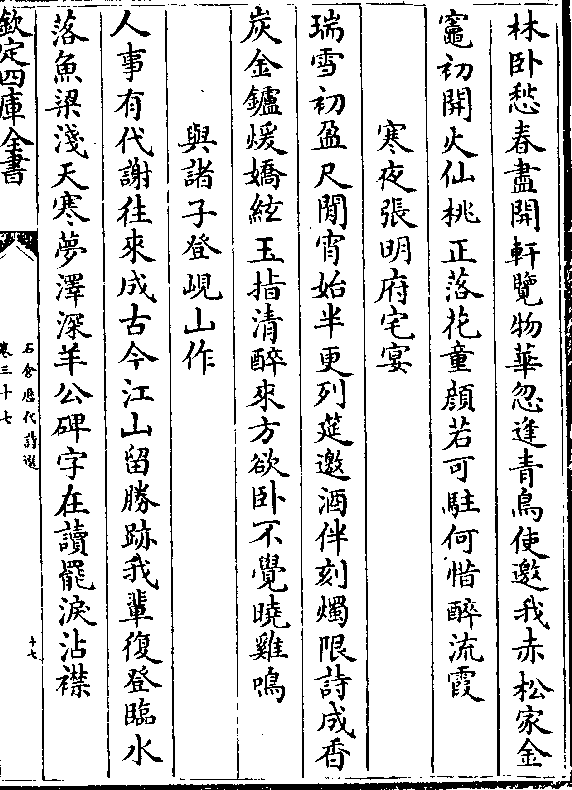 林卧愁春盡開軒覽物華忽逢青鳥使邀我赤松家金
竈初開火仙桃正落花童顔若可駐何惜醉流霞
寒夜張明府宅宴
瑞雪初盈尺閒宵始半更列筵邀酒伴刻燭限詩成香
炭金鑪煖嬌絃玉指清醉來方欲卧不覺曉雞鳴
與諸子登峴山作
人事有代謝往來成古今江山留勝跡我輩復登臨水
落魚梁淺天寒夢澤深羊公碑字在讀罷淚沾襟
欽定四庫全書
石倉歷代詩選
卷三十七
十七